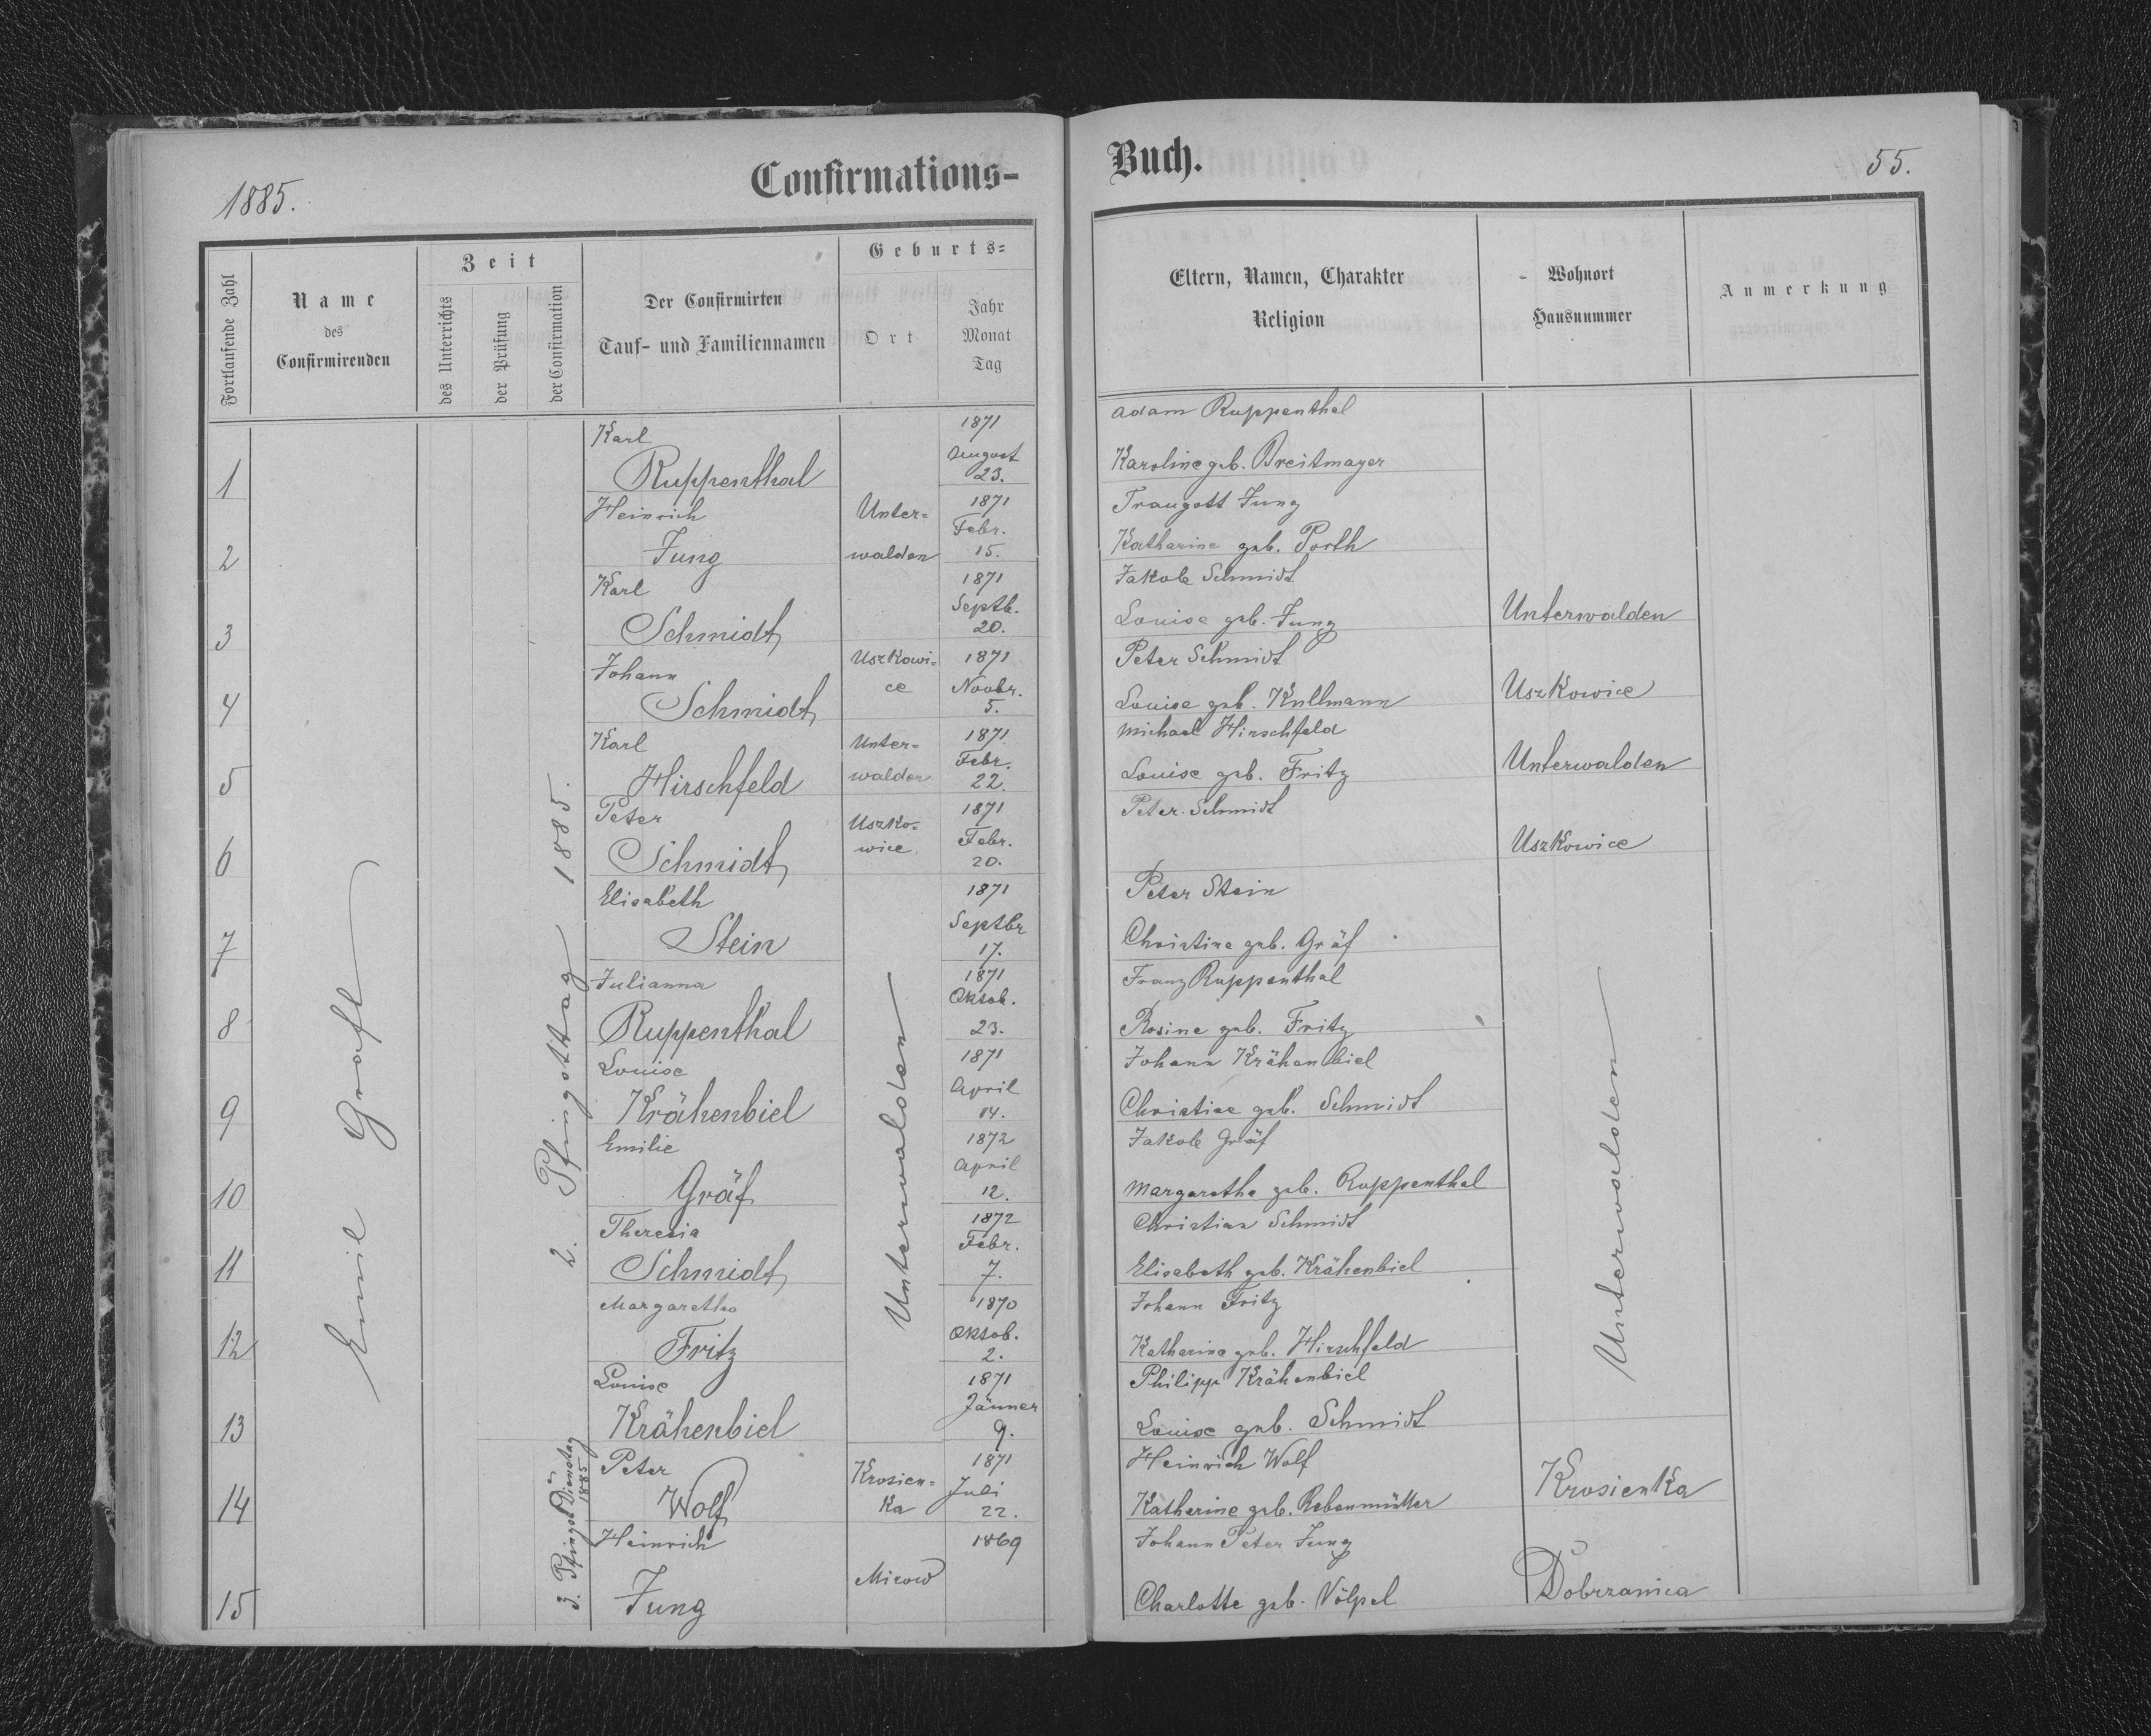 1885.
Confirmations-
Fortlaufende Zahl
Name
des
Confirmirenden
Zeit
des Unterrichts
der Prüfung
der Confirmation
Der Confirmirten
Tauf- und Familiennamen
Geburts=
Ort
Jahr
Monat
Tag
Emil Graft
2. Pfingsttag 1885.
3. Pfingst Dienstag
1885
Karl
1871
August
1
Ruppenthal
23.
Heinrich
Unter=
1871
Febr.
2
Jung
walden
15.
Karl
1871
Septb.
3
Schmidt
20.
Johann
Uszkowi=
1871
ce
Novbr.
4
Schmidt
5.
Karl
Unter=
1871
walden
Febr.
5
Hirschfeld
22.
Peter
Uszko=
1871
wice
Febr.
6
Schmidt
20.
Elisabeth
1871
Septbr
7
Stein
17.
Julianna
1871
Oktob.
8
Ruppenthal
23.
Louise
1871
April
9
Krähenbiel
14.
Emilie
1872
April
10
Gräf
12.
Theresia
1872
Febr.
11
Schmidt
7.
Margaretha
1870
Oktob.
12
Fritz
2.
Louise
1871
Jänner
13
Krähenbiel
9.
Unterwalden
Peter
Krosien=
1871
ka
Juli
14
Wolf
22.
Heinrich
1869
Mirow
15
Jung
Buch.
55.
Eltern, Namen, Charakter
Religion
Wohnort
Hausnummer
Anmerkung
Adam Ruppenthal
Karoline geb. Breitmayer
Traugott Jung
Katharine geb. Porth
Jakob Schmidt
Louise geb. Jung
Unterwalden
Peter Schmidt
Louise geb. Kullmann
Uszkowice
Michael Hirschfeld
Louise geb. Fritz
Unterwalden
Peter Schmidt
Uszkowice
Peter Stein
Christine geb. Gräf
Franz Ruppenthal
Rosine geb. Fritz
Johann Krähenbiel
Christine geb. Schmidt
Jakob Gräf
Margaretha geb. Ruppenthal
Christian Schmidt
Elisabeth geb. Krähenbiel
Johann Fritz
Katharine geb. Hirschfeld
Philipp Krähenbiel
Louise geb. Schmidt
Unterwalden
Heinrich Wolf
Katherine geb. Rebenmüller
Krosienka
Johann Peter Jung
Charlotte geb. Völpel
Dobrzanica